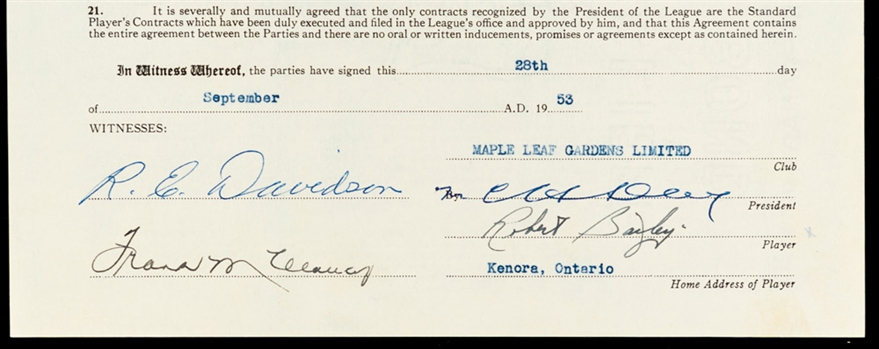 21. It is severally and mutually agreed that the only contracts recognized by the President of the League are the Standard
Player's Contracts which have been duly executed and filed in the League's office and approved by him, and that this Agreement contains
the entire agreement between the Parties and there are no oral or written inducements, promises or agreements except as contained herein.
In Witness Whereof, the parties have signed this 28th day
of September A.D. 19 53
WITNESSES:
MAPLE LEAF GARDENS LIMITED
Club
R. E. Davidson
President
Robert Bailey
Player
Frank M
Kenora, Ontario
Home Address of Player